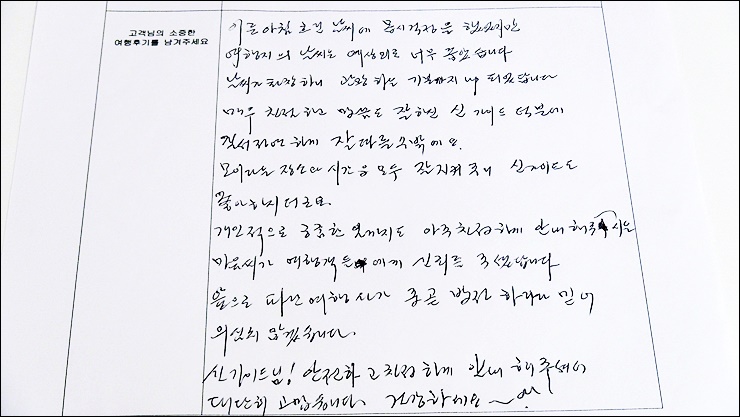 고객님의 소중한
여행후기를 남겨주세요
이른아침 흐린 날씨에 몹시걱정을 했었지만
여행지의 날씨는 예상외로 너무 좋았습니다
날씨가 화창하니 관광하는 기분까지 up 되었답니다
매우 친절하고 말씀도 잘하신 신 가이드 덕분에
질서정연하게 잘 따를수밖에요.
모이라는 장소와 시간을 모두 잘지켜주니 신가이드도
좋아하시더군요.
개인적으로 궁금한 것까지도 아주친절하게 안내해주시는
마음씨가 여행객들에게 신뢰를 주셨답니다
앞으로 여행사가 종곧 발전 하리라 믿어
의심치 않겠습니다.
신가이드님! 안전하고친절하게 안내 해주셔서
대단히 고맙습니다. 건강하세요~